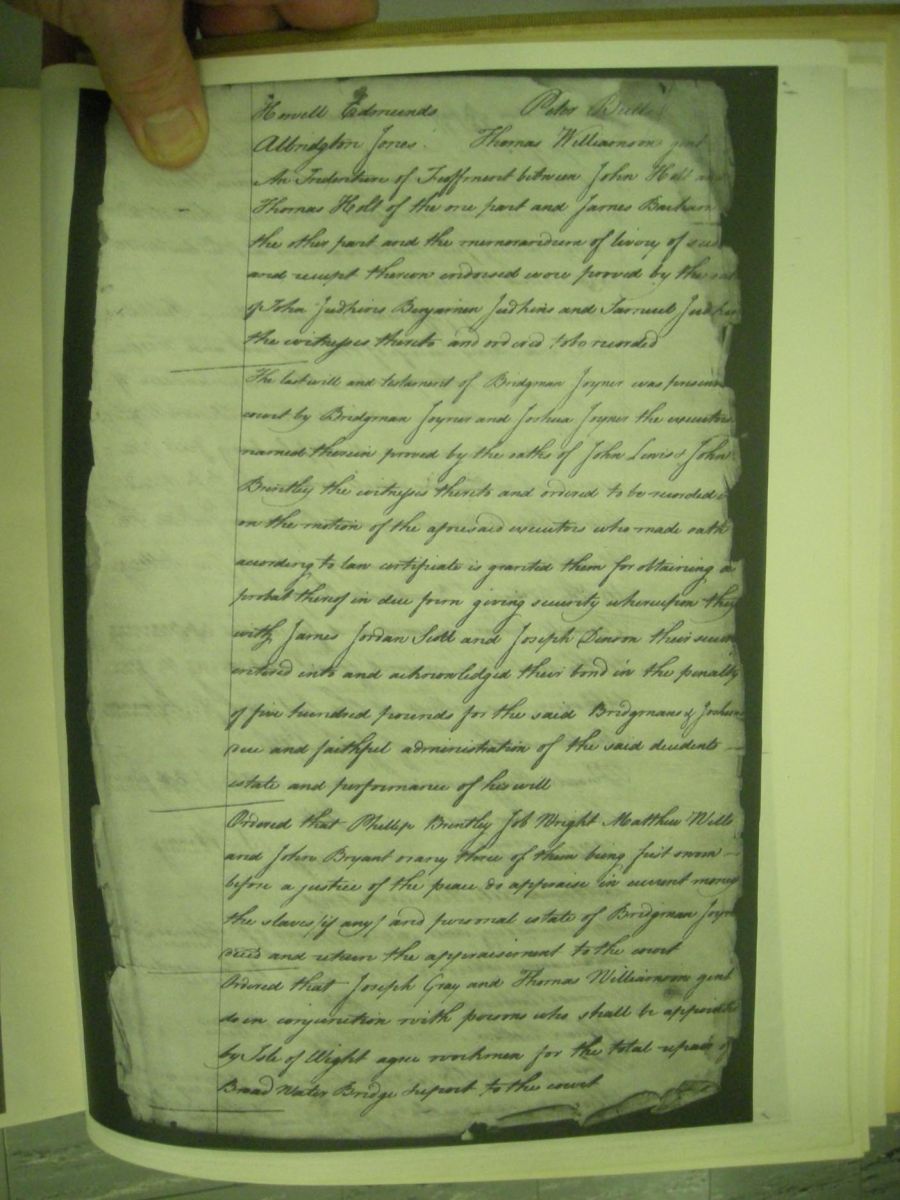 Howell Edmunds Peter Butts
Albridgton Jones Thomas Williamson gent
An Indenture of Feoffment between John Holt and
Thomas Holt of the one part and James Barham
the other part and the memorandum of livery of
and receipt thereon endorsed were proved by the
of John Judkins Benjamin Judkins and Samuel Judkins
the witnesses thereto and ordered to be recorded
The last will and testament of Bridgman Joyner was
court by Bridgman Joyner and Joshua Joyner the executors
named therein proved by the oaths of John Lewis & John
Brintley the witnesses thereto and ordered to be recorded
on the motion of the aforesaid executors who made oath
according to law certificate is granted them for obtaining a
probat thereof in due form giving security whereupon they
with James Jordan Scott and Joseph their
entered into and acknowledged their bond in the penalty
of five hundred pounds for the said Bridgmans & Joshuas
due and faithful administration of the said decedents
estate and performance of his will
Ordered that Phillip Brintley Job Wright Matthew Wills
and John Bryant or any three of them being first sworn
before a justice of the peace do appraise in current money
the slaves (if any) and personal estate of Bridgman
decd and return the appraisement to the court
Ordered that Joseph Gray and Thomas Williamson gent
do in conjunction with persons who shall be appointed
by Isle of Wight agree workmen for the total repair of
Broad Water Bridge report to the court